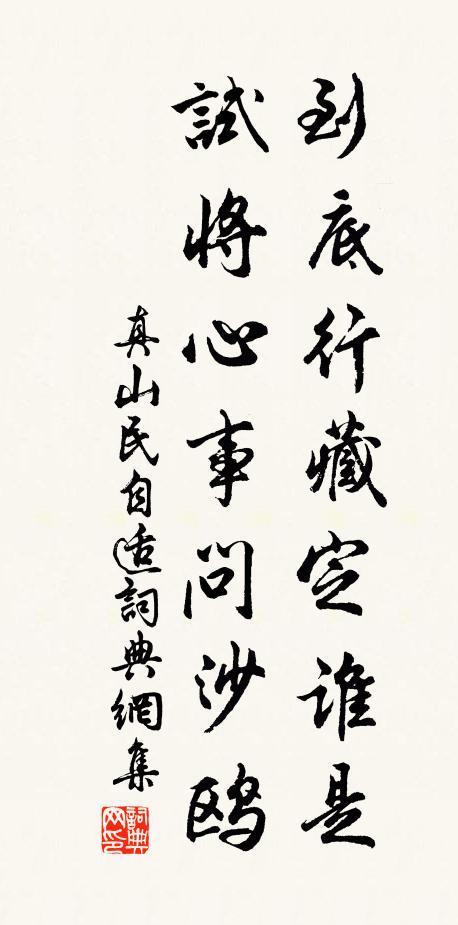 到底行藏定誰是
試將心事問沙鷗
真山民自适詞典網集
詞典网印